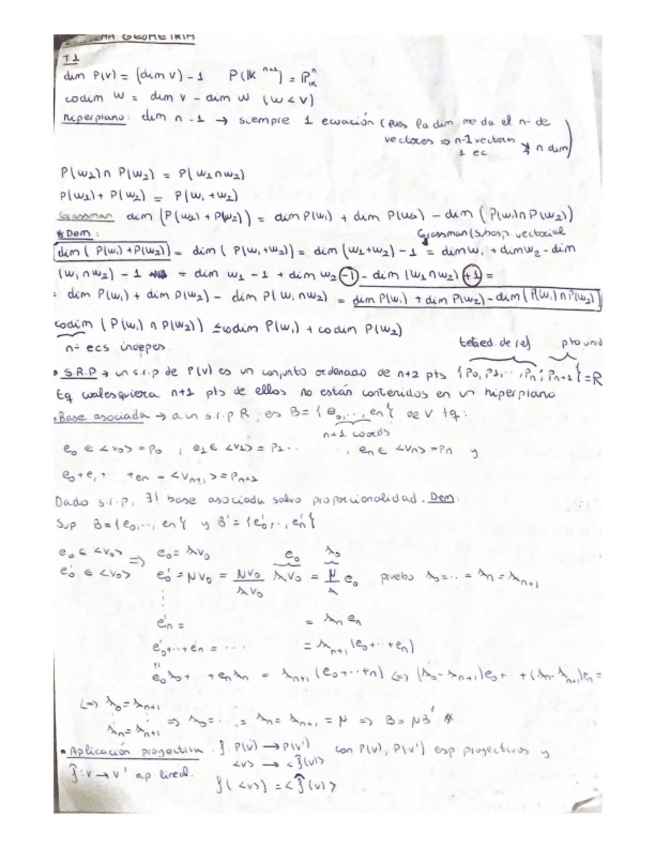 GEOMETRIA
T1
dim P(V) = (dim V) - 1   P(K^{n+1}) = P^n_K
codim W = dim V - dim W (W < V)
hiperplano: dim n-1 → siempre 1 ecuación (pues la dim me da el nº de
vectores ⇒ n-1 vectores
1 ec                n dim)
P(W1) ∩ P(W2) = P(W1 ∩ W2)
P(W1) + P(W2) = P(W1 + W2)
Grassman dim (P(W1) + P(W2)) = dim P(W1) + dim P(W2) - dim (P(W1) ∩ P(W2))
* Dem:                Grassman (subesp. vectorial
dim (P(W1) + P(W2)) = dim (P(W1 + W2)) = dim (W1 + W2) - 1 = dim W1 + dim W2 - dim
(W1 ∩ W2) - 1 = dim W1 - 1 + dim W2 - 1 - dim (W1 ∩ W2) + 1 =
= dim P(W1) + dim P(W2) - dim P(W1 ∩ W2) = dim P(W1) + dim P(W2) - dim (P(W1) ∩ P(W2))
codim (P(W1) ∩ P(W2)) ≤ codim P(W1) + codim P(W2)
nº ecs indepes.        pto unid
• S.R.P → un s.r.p de P(V) es un conjunto ordenado de n+2 pts {P0, P1, ..., Pn; Pn+1} = R
tq cualesquiera n+1 pts de ellos no están contenidos en un hiperplano
• Base asociada → a un s.r.p R, es B = {e0, ..., en} de V tq:
n+1 coords
e0 ∈ <v0> = P0 , e1 ∈ <v1> = P1 ... , en ∈ <vn> = Pn y
e0 + e1 + ... + en = <vn+1> = Pn+1
Dado s.r.p, ∃! base asociada salvo proporcionalidad. Dem:
Sup B = {e0, ..., en} y B' = {e0', ..., en'}
e0 ∈ <v0> ⇒ e0 = λv0       e0   λ0
e0' ∈ <v0>    e0' = Nv0 = Nv0/λv0 λv0 = N/λ e0   pruebo λ0 = ... = λn = λn+1
⋮
en' =        = λn en
e0' + ... + en' = ...   = λn+1 (e0 + ... + en)
"
e0λ0 + ... + enλn = λn+1 (e0 + ... + n) ⇔ (λ0 - λn+1)e0 + ... + (λn - λn+1)en =
⇔ λ0 = λn+1
⋮
λn = λn+1 ⇒ λ0 = ... = λn = λn+1 = N ⇒ B = NB' *
• Aplicación proyectiva: f: P(V) → P(V')   con P(V), P(V') esp proyectivos y
<v> → <f̂(v)>
f̂: V → V' ap lineal.   f(<v>) = <f̂(v)>